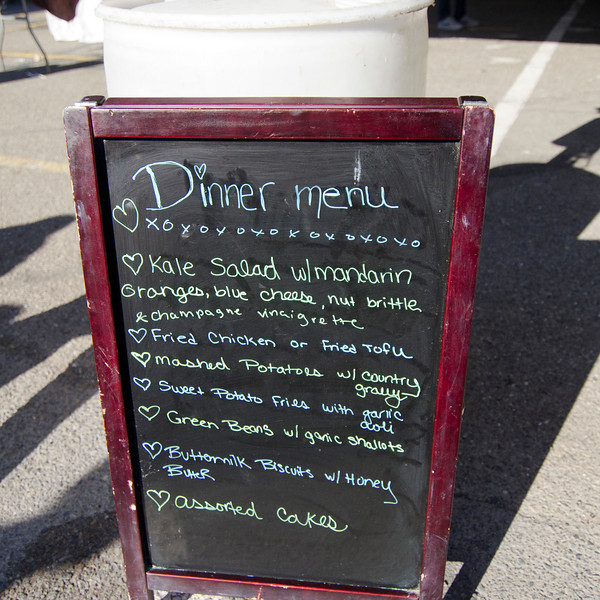 Dinner menu
XOXOXOXOXOXOXOXO
Kale Salad w/mandarin
oranges, blue cheese, nut brittle
& champagne vinaigrette
Fried Chicken or Fried Tofu
mashed Potatoes w/ country
gravy
Sweet Potato Fries with garlic
aoli
Green Beans w/ garlic shallots
Buttermilk Biscuits w/ Honey
Butter
assorted cakes